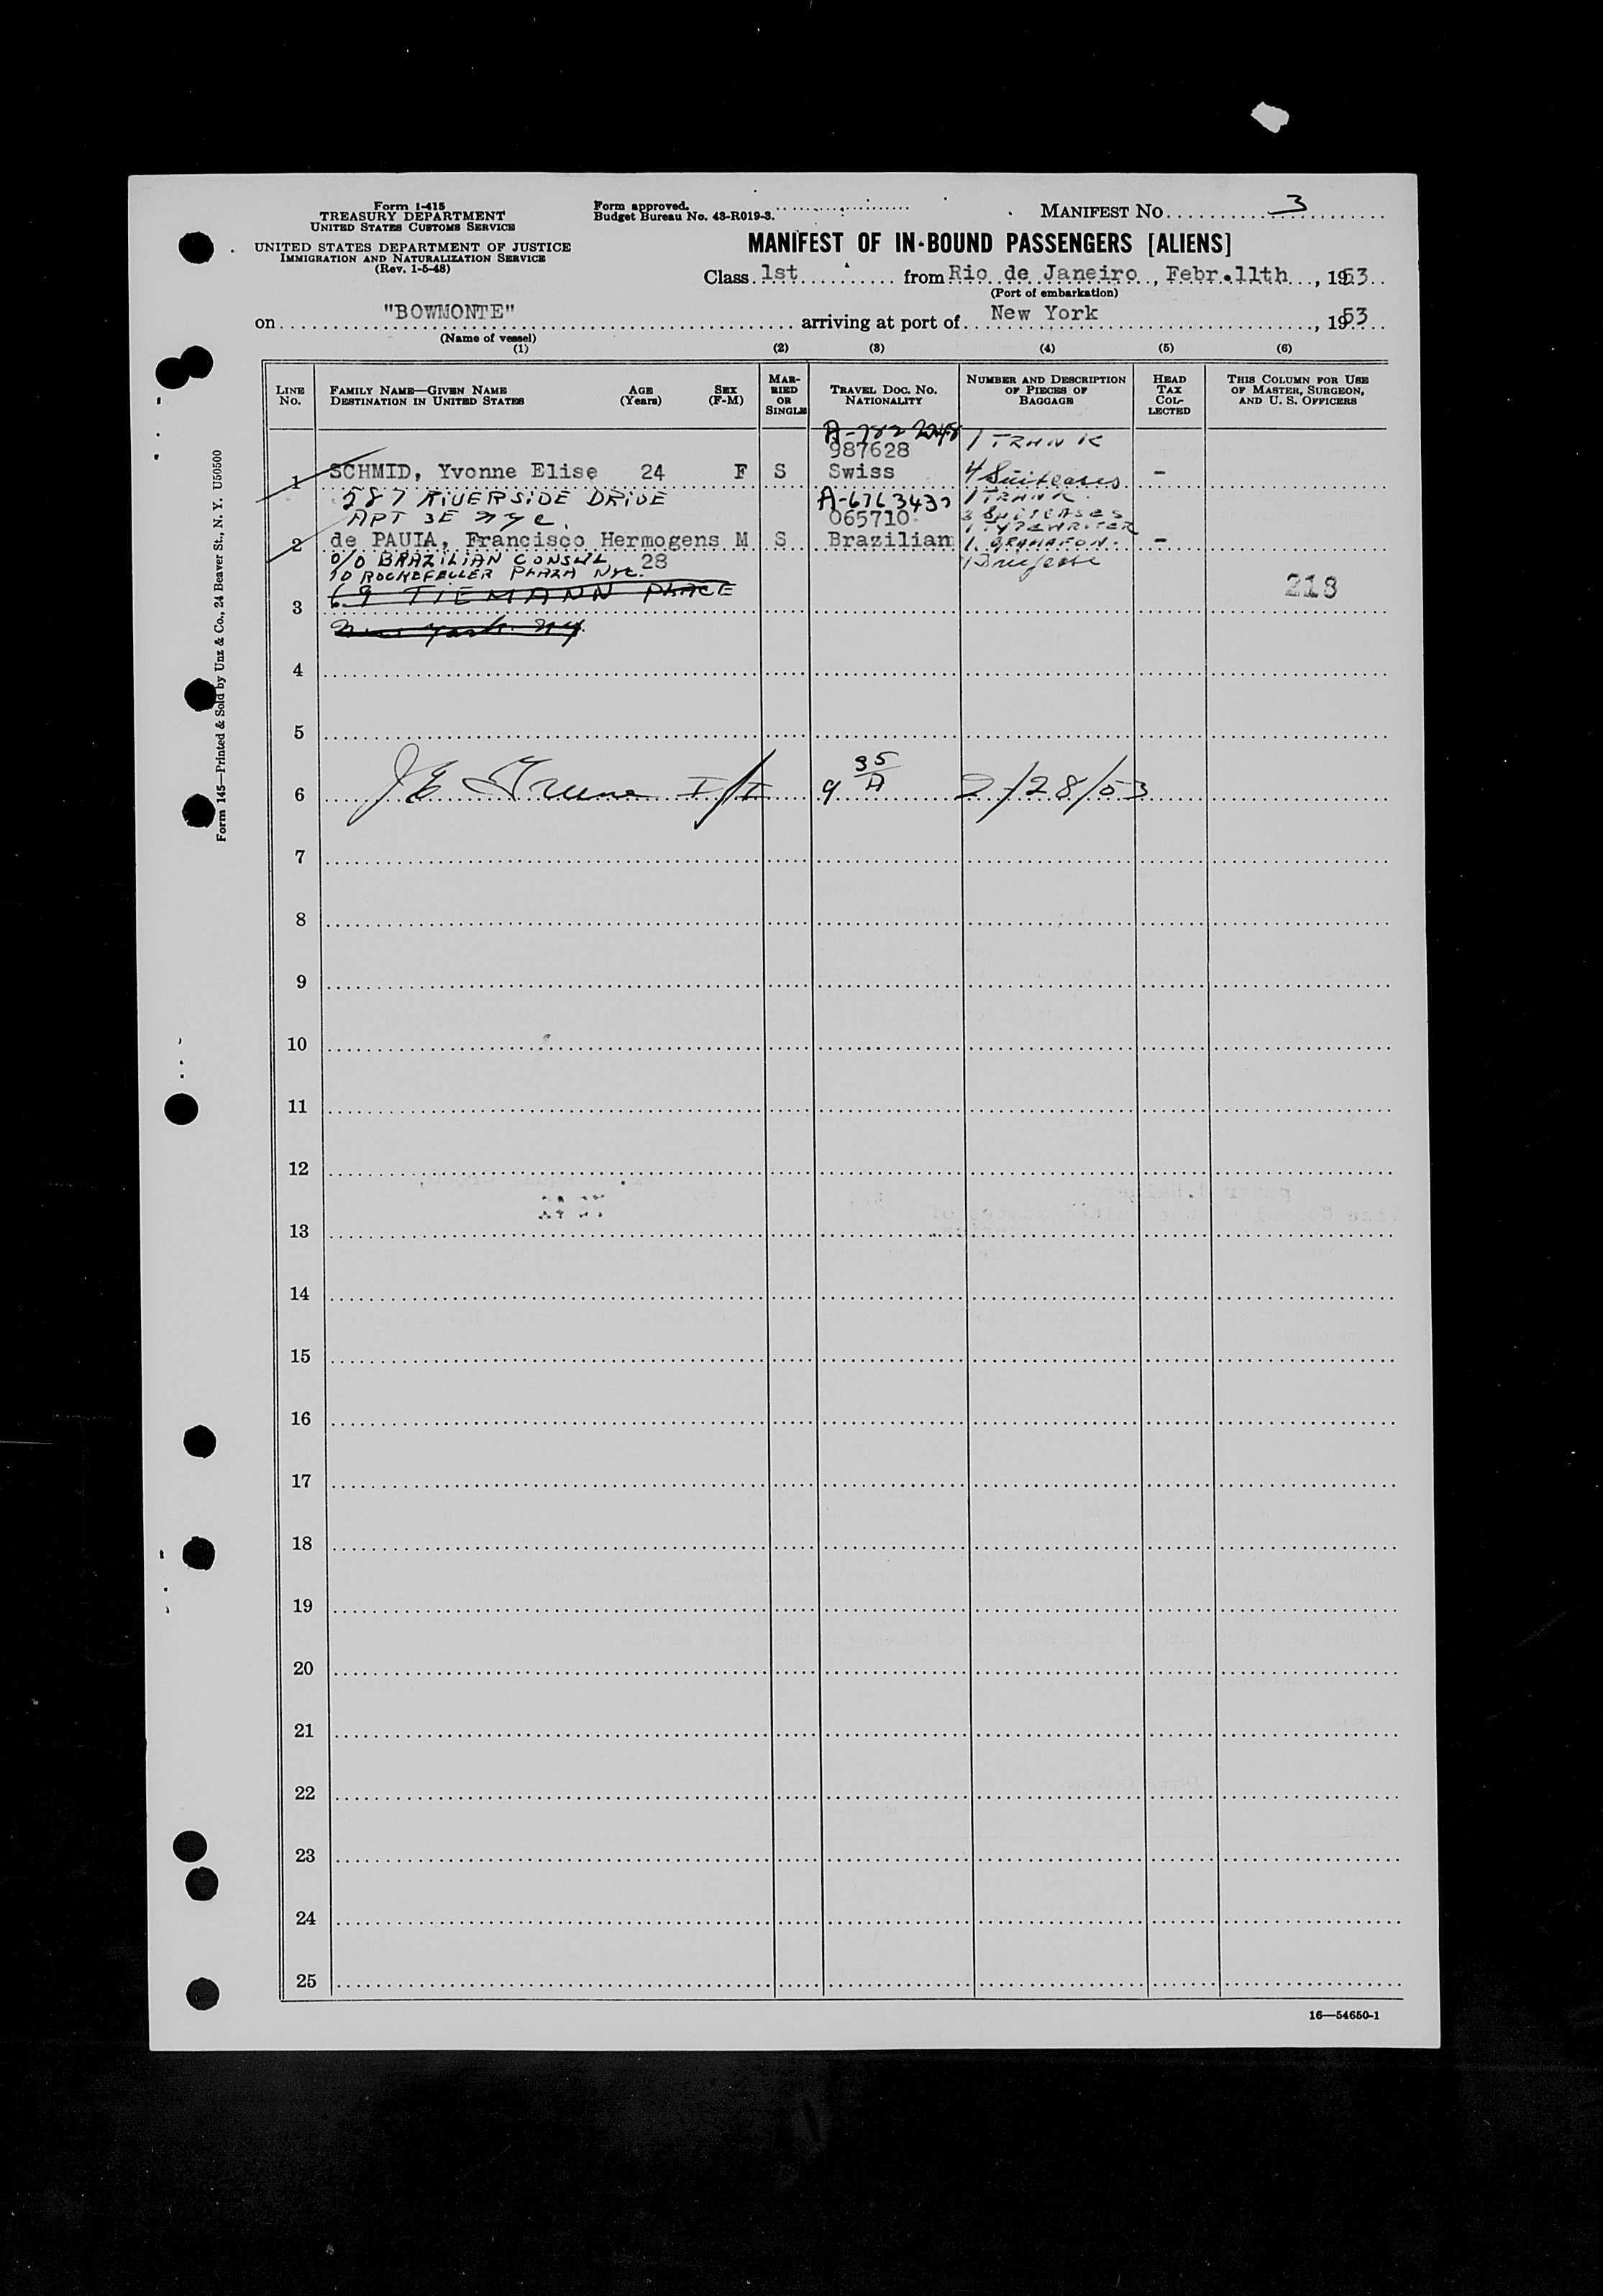 Form I-415
TREASURY DEPARTMENT
UNITED STATES CUSTOMS SERVICE
UNITED STATES DEPARTMENT OF JUSTICE
IMMIGRATION AND NATURALIZATION SERVICE
(Rev. 1-5-48)
Form approved.
Budget Bureau No. 43-R019-3.
MANIFEST NO. 3
MANIFEST OF IN-BOUND PASSENGERS [ALIENS]
Class 1st from Rio de Janeiro, Febr.11th, 1953
(Port of embarkation)
on "BOWMONTE" arriving at port of New York, 1953
(Name of vessel)
(1) (2) (3) (4) (5) (6)
LINE NO. FAMILY NAME—GIVEN NAME DESTINATION IN UNITED STATES AGE (Years) SEX (F-M) MARRIED OR SINGLE TRAVEL DOC. NO. NATIONALITY NUMBER AND DESCRIPTION OF PIECES OF BAGGAGE HEAD TAX COLLECTED THIS COLUMN FOR USE OF MASTER, SURGEON, AND U. S. OFFICERS
987628 1 TRANK
1 SCHMID, Yvonne Elise 24 F S Swiss 4 Suitcases -
587 RIVERSIDE DRIVE 1 TRANK
APT 3E NYC. 065710 3 SUITCASES
1 TYPEWRITER
2 de PAUIA, Francisco Hermogens M S Brazilian 1 GRAMAFON. -
c/o BRAZILIAN CONSUL 28
10 ROCKEFELLER PLAZA NYC.
69 TIEMANN PLACE 218
3
New York NY.
4
5
6 9 35/A 2/28/53
7
8
9
10
11
12
13
14
15
16
17
18
19
20
21
22
23
24
25
16—54650-1
Form 145—Printed & Sold by Unz & Co., 24 Beaver St., N. Y. U50500